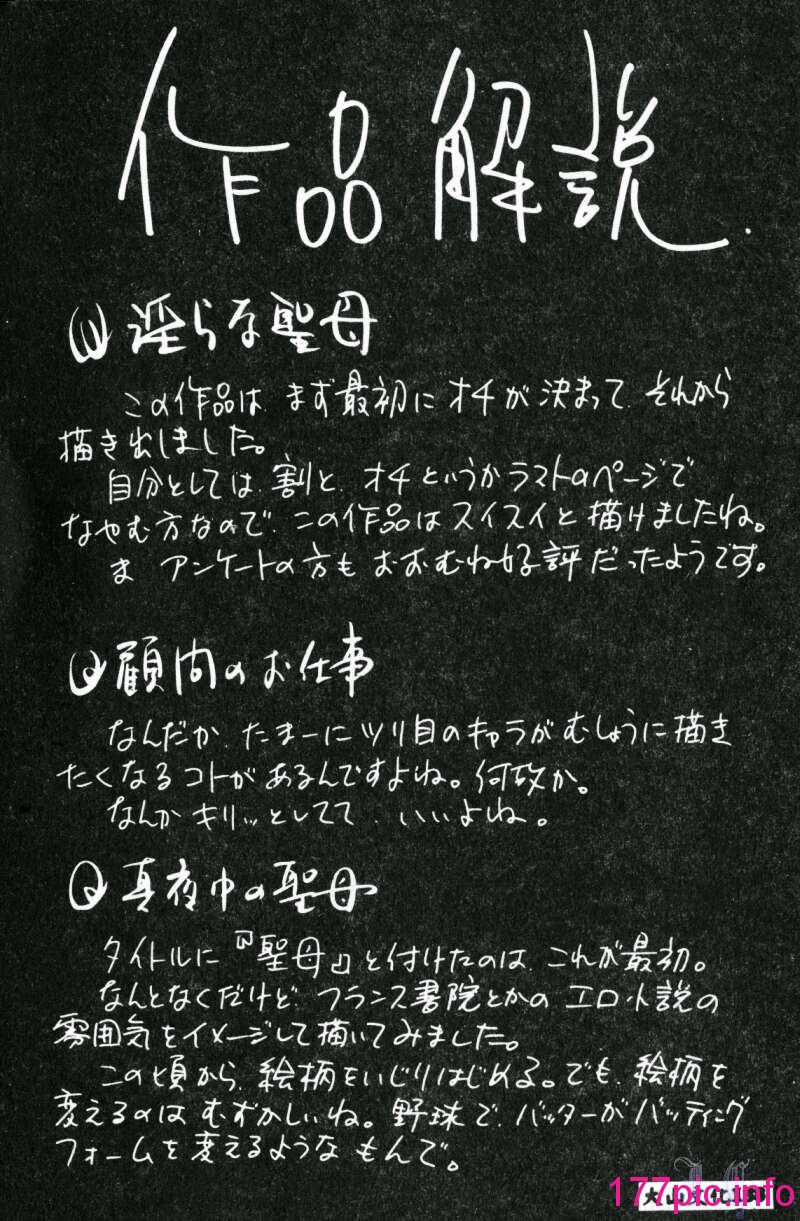 作品解説.
淫らな聖母
この作品は、まず最初にオチが決まって、それから
描き出しました。
自分としては、割と、オチというかラストのページで
なやむ方なので、この作品はスイスイと描けましたね。
ま アンケートの方もおおむね好評だったようです。
顧問のお仕事
なんだか、たまーにツリ目のキャラがむしょうに描き
たくなるコトがあるんですよね。何故か。
なんかキリッとしてて、いいよね。
真夜中の聖母
タイトルに『聖母』と付けたのは、これが最初。
なんとなくだけど、フランス書院とかのエロ小説の
雰囲気をイメージして描いてみました。
この頃から、絵柄をいじりはじめる。でも、絵柄を
変えるのはむずかしいね。野球で、バッターがバッティング
フォームを変えるようなもんで。
177pic.info